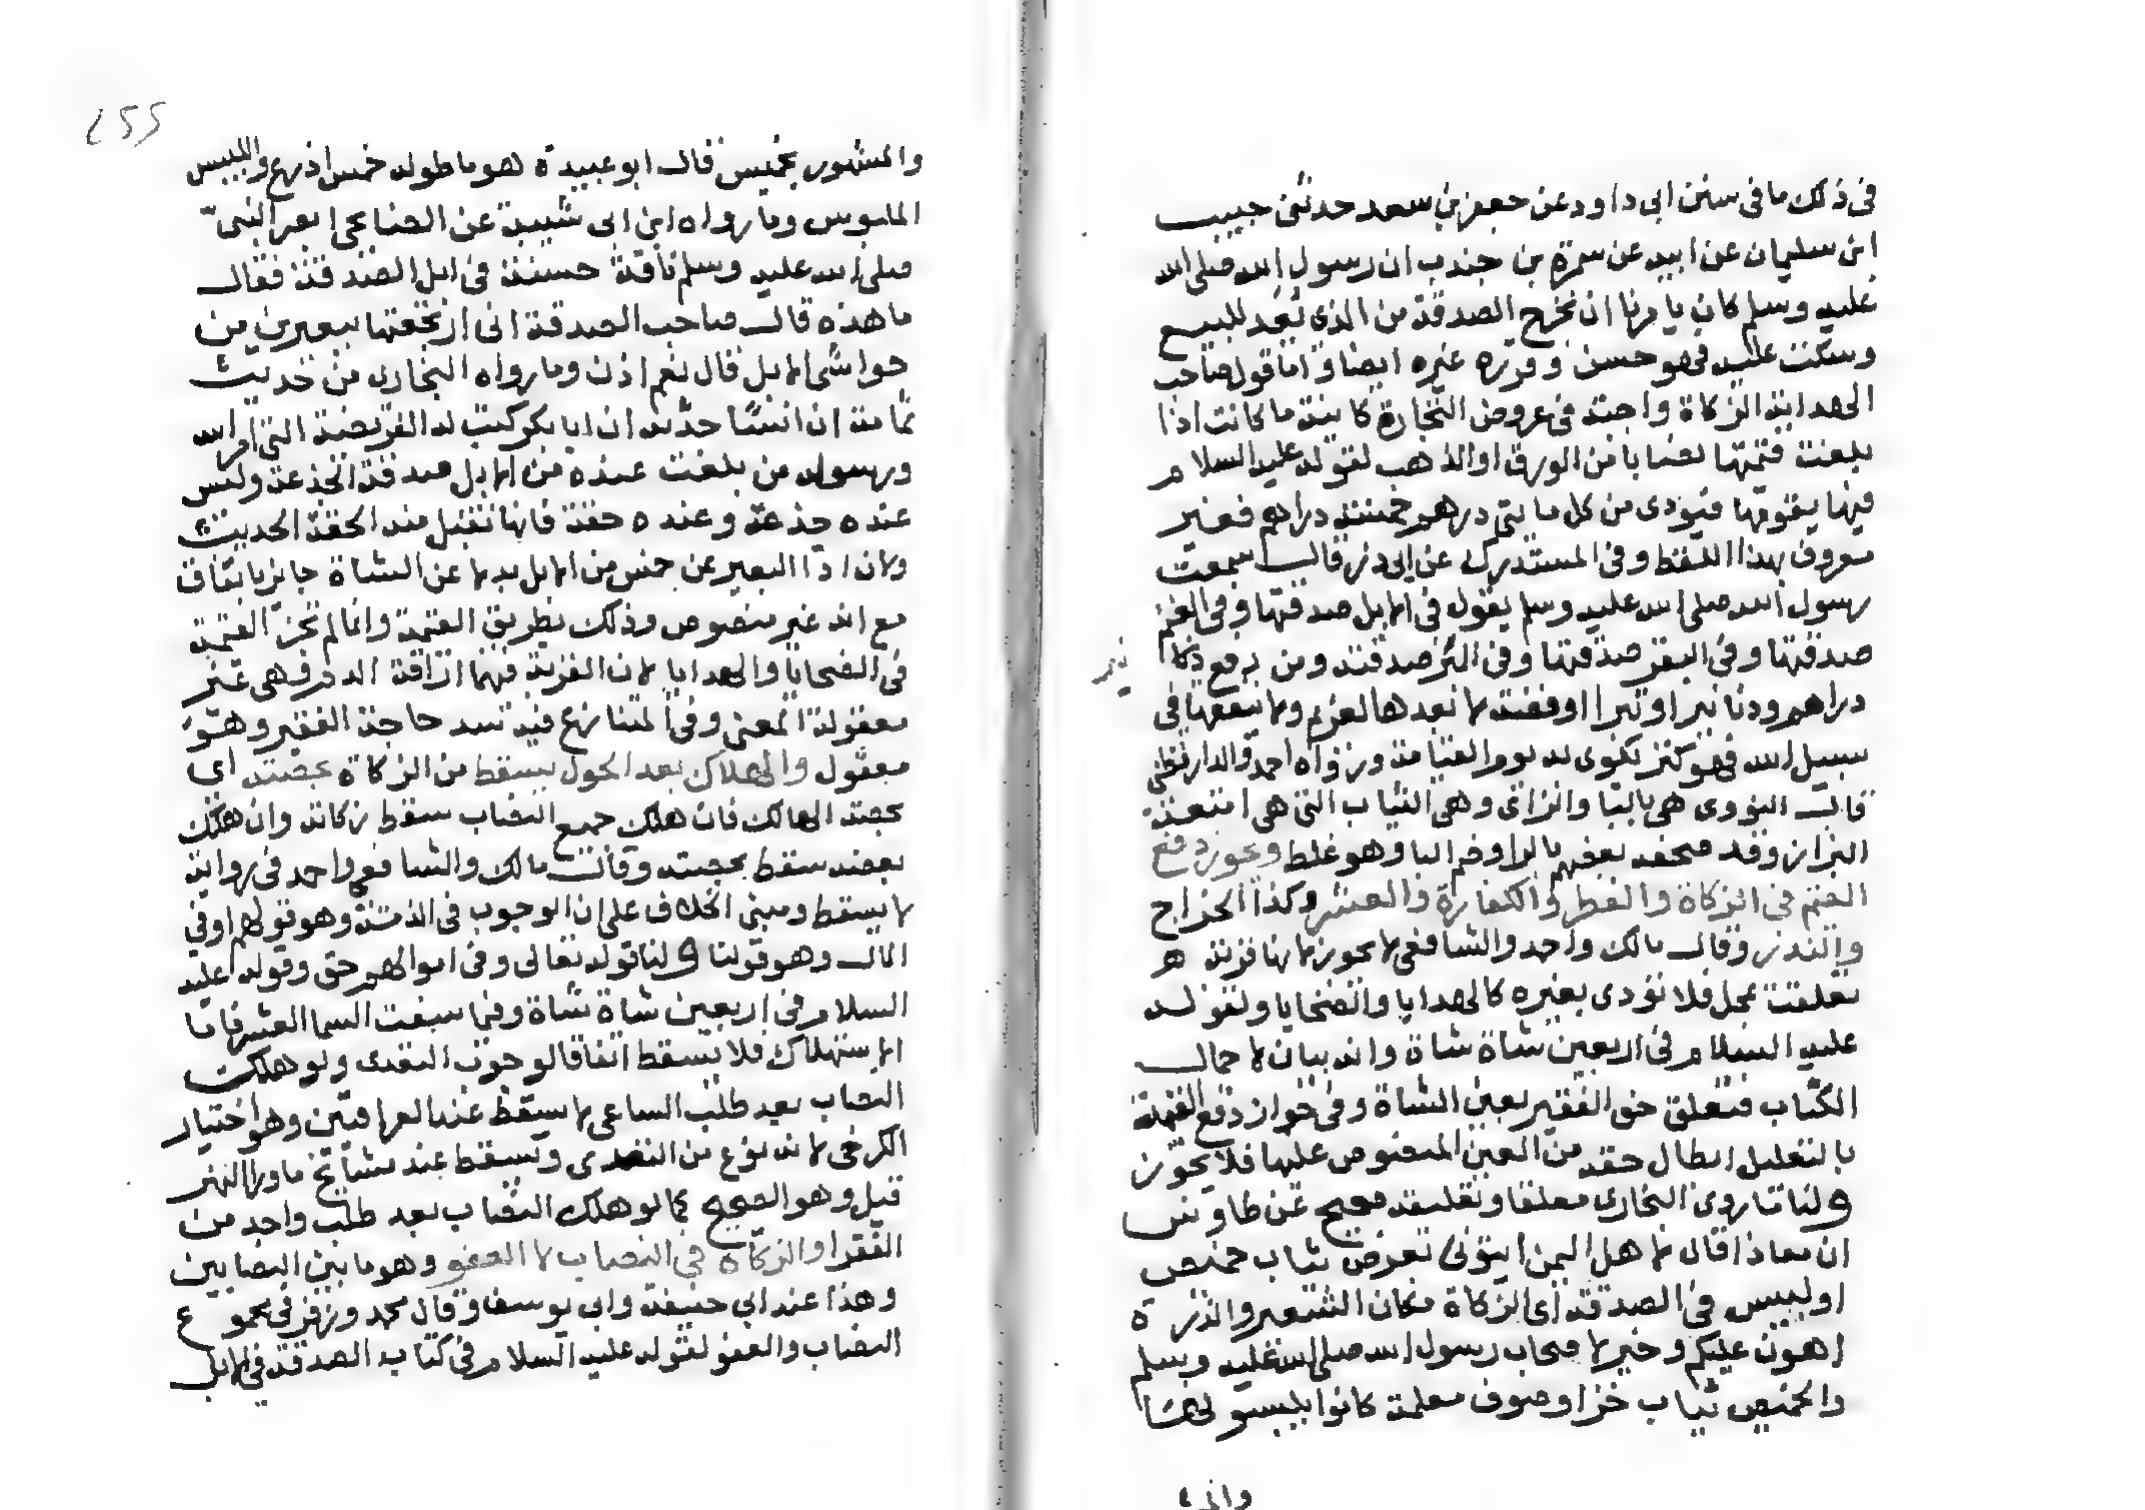 في ذلك ما في سنن ابى داود عن جعفر بن سعد حدثني حبيب
ابن سليمان عن ابيه عن سمرة بن جندب ان رسول الله صلى الله
عليه وسلم كان يامرنا ان نخرج الصدقة من الذى نعد للبيع
وسكت عليه فهو حسن وقرره غيره ايضا واما قول صاحب
الهداية الزكاة واجبة في عروض التجارة كاينة ما كانت اذا
بلغت قيمتها نصابا من الورق او الذهب لقوله عليه السلام
فيها يقومها فيودى من كل مائتى درهم خمسة دراهم فغير
معروف بهذا اللفظ وفي المستدرك عن ابى ذر قال سمعت
رسول الله صلى الله عليه وسلم يقول في الابل صدقتها وفي الغنم
صدقتها وفي البقر صدقتها وفي البز صدقته ومن رفع
دراهم ودنانير او تبرا او فضة لا يعدها لغريم ولا ينفقها في
سبيل الله فهو كنز يكوى به يوم القيامة ورواه احمد والدارقطني
قال النووى هي بالبا والزاى وهي الثياب التي هي امتعة
البزاز وقد صحفه بعضهم بالرا وضم البا وهو غلط ويجوز دفع
القيم في الزكاة والفطر والكفارة والعشر وكذا الخراج
والنذر وقال مالك واحمد والشافعي لا يجوز لانها قربة
تعلقت بمحل فلا تؤدى بغيره كالهدايا والضحايا ولقوله
عليه السلام في اربعين شاة شاة وانه بيان لاجمال
الكتاب فتعلق حق الفقير بعين الشاة وفي جواز دفع القيمة
بالتعليل ابطال حقه من العين المنصوص عليها فلا يجوز
ولنا ما روى البخارى معلقا وتعليقه صحيح عن طاوس
ان معاذا قال لاهل اليمن ايتوني بعرض ثياب خميص
او لبيس في الصدقة اى الزكاة مكان الشعير والذرة
اهون عليكم وخير لاصحاب رسول الله صلى الله عليه وسلم
والخميص ثياب خز او صوف معلمة كانوا يلبسونها
والمشهور بخميس قال ابو عبيدة هو ما طوله خمس اذرع واللبيس
الملبوس وما رواه ابن ابى شيبة عن الصنابحى ابصر النبى
صلى الله عليه وسلم ناقة حسنة في ابل الصدقة فقال
ما هذه قال صاحب الصدقة انى ارتجعتها ببعيرين من
حواشى الابل قال نعم اذن وما رواه البخارى من حديث
ثمامة ان انسًا حدثه ان ابا بكر كتب له الفريضة التى امر الله
ورسوله من بلغت عنده من الابل صدقة الجذعة وليس
عنده جذعة وعنده حقة فانها تقبل منه الحقة الحديث
ولان اداا البعير عن خمس من الابل بدلا عن الشاة جايز باتفاق
مع انه غير منصوص وذلك بطريق القيمة وانما لم تجز القيمة
في الضحايا والهدايا لان القربة فيهما اراقة الدم وهي غير
معقولة المعنى وفي المتنازع فيه سد حاجة الفقير وهو
معقول والهلاك بعد الحول يسقط من الزكاة بحصته اى
بحصة الهالك فان هلك جميع النصاب سقط زكاته وان هلك
بعضه سقط بحصته وقال مالك والشافعي واحمد في رواية
لا يسقط ومبنى الخلاف على ان الوجوب في الذمة وهو قولهم او في
المال وهو قولنا ولنا قوله تعالى وفي اموالهم حق وقوله عليه
السلام في اربعين شاة شاة وفيما سقت السما العشر فاما
الاستهلاك فلا يسقط اتفاقا لوجود التعدى ولو هلك
النصاب بعد طلب الساعى لا يسقط عند العراقيين وهو اختيار
الكرخى لانه نوع من التعدى ويسقط عند مشايخ ما ورا النهر
قيل وهو الصحيح كما لو هلك النصاب بعد طلب واحد من
الفقرا والزكاة في النصاب لا العفو وهو ما بين النصابين
وهذا عند ابى حنيفة وابى يوسف وقال محمد وزفر في مجموع
النصاب والعفو لقوله عليه السلام في كتاب الصدقة في الابل